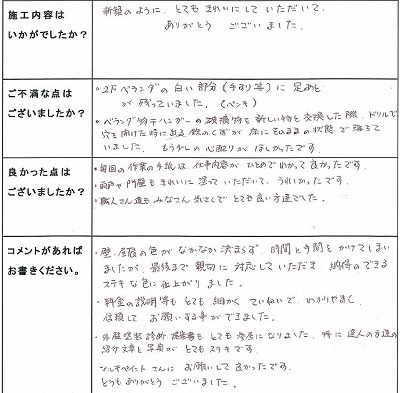 施工内容は
いかがでしたか？
新築のように、とてもきれいにして いただいて、
ありがとう ございました。
ご不満な点は
ございましたか？
・2F ベランダの 白い部分(手すり等)に 足あと
が 残っていました。(ペンキ)
・ベランダ物干ハンガーの破損物を新しい物と交換した際、ドリルで
穴を開けた時に出る鉄のくずが 床にそのままの状態で落ちて
いました。 もう少しの心配りが ほしかったです。
良かった点は
ございましたか？
・毎回の作業の手紙は、仕事内容が ひとめでわかって良かったです。
・雨戸や 門壁も きれいに 塗って いただいて、うれしかったです。
・職人さん達も みなさん 気さくで とても良い方達でした。
コメントがあれば
お書きください。
・壁、屋根の色が なかなか 決まらず、時間と手間を かけてしまい
ましたが、最後まで 親切に 対応していただき 納得のできる
ステキな色に仕上がりました。
・料金の説明等も とても 細かく、ていねいで、わかりやすく、
信頼して お願いする事ができました。
・外壁塗装診断・提案書も とても 参考に なりました。特に 達人の方達の
紹介文章と写真が とてもステキです。
マルセペイント さんに お願いして 良かったです。
どうもありがとう ございました。